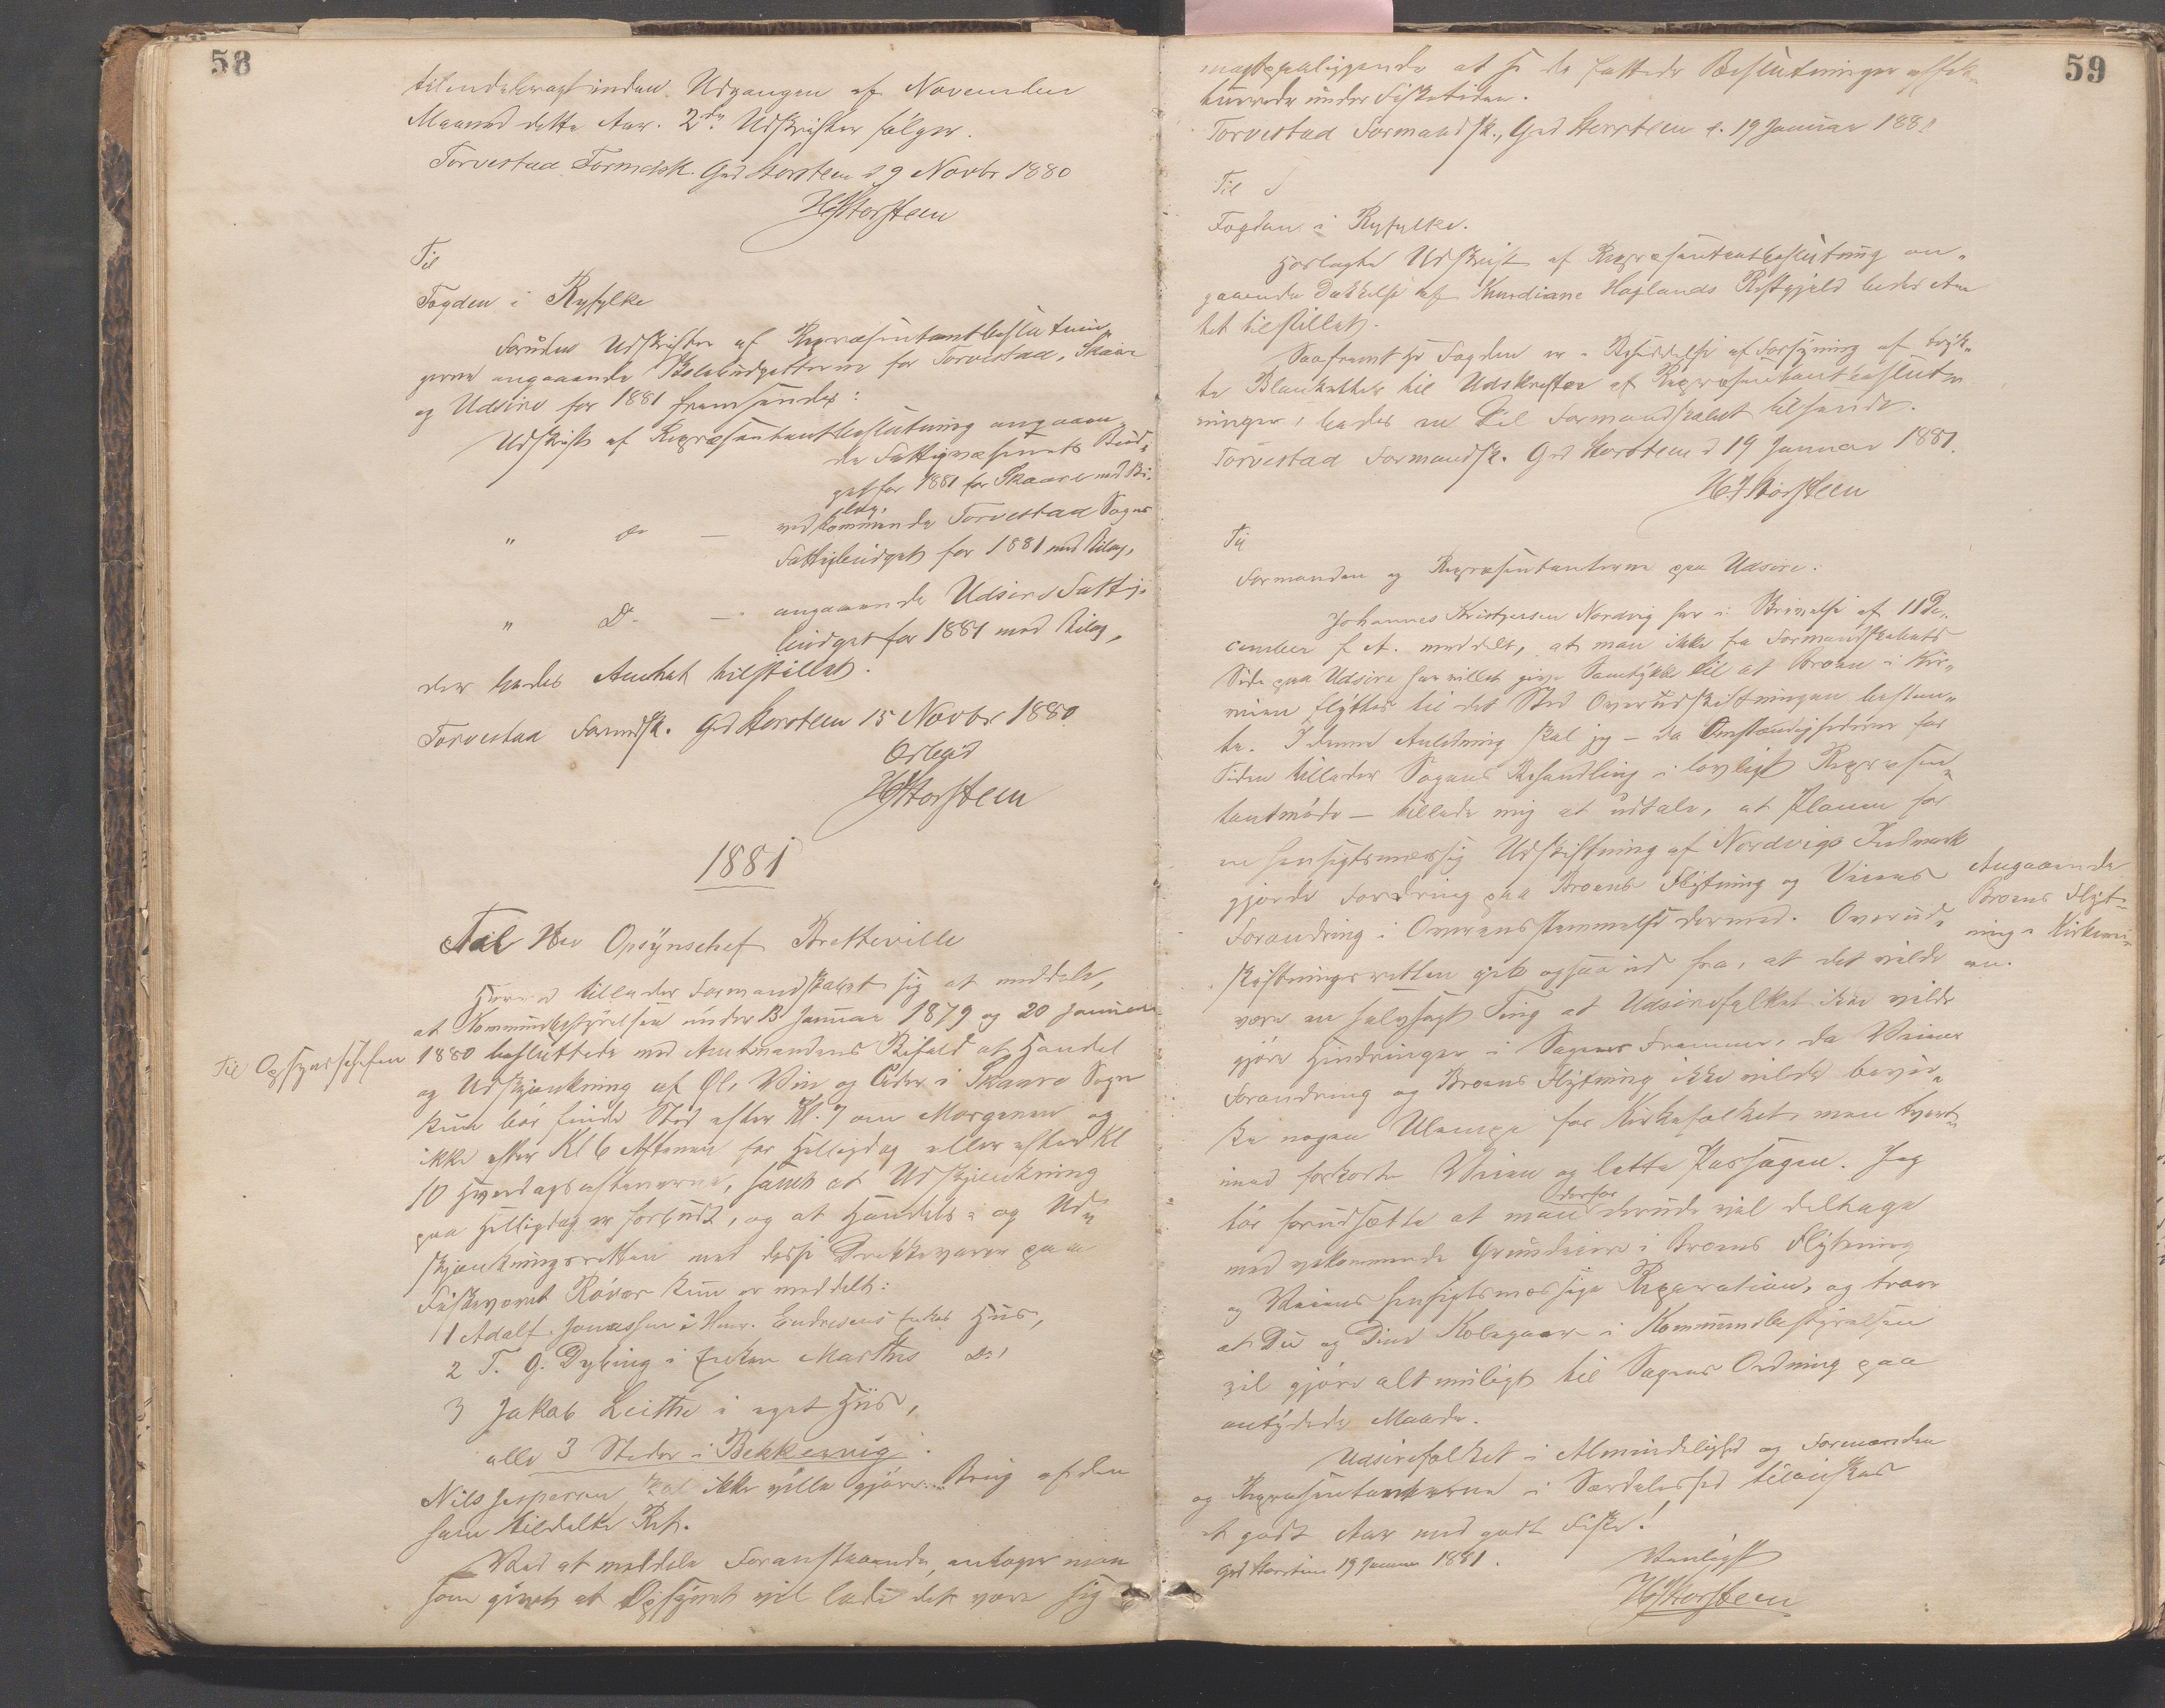 58
tilendebragt inden Udgangen af November
Maaned dette Aar. 2de Udskrifter følger.
Torvestad Formdsk. Grd Storsteen d 9 Novbr 1880
HStorsteen
Til
Fogden i Ryfylke
Foruden Udskrifter af Repræsentantbeslutnin„
gerne angaaende Skolebudgetterne for Torvestad, Skaare
og Udsire for 1881 fremsendes:
Udskrift af Repræsentantbeslutning angaaen„
de Fattigvæsenets Bud„
get for 1881 for Skaare med Bi„
lag,
„ do — vedkommende Torvestad Sogns
Fattigbudget for 1881 med Bilag,
„ Do — angaaende Udsire Fattig„
budget for 1881 med Bilag,
der bedes Amtet tilstillet.
Torvestad Formdsk. Grd Storsteen 15 Novbr 1880
Ørbødt
HStorsteen
1881
Til Hr Opsynschef Bretteville
Herved tillader Formandskabet sig at meddele,
at Kommunebestyrelsen under 13 Januar 1879 og 20 Januar
Til Opsynschefen
1880 besluttede med Amtmandens Bifald at Handel
og Udskjænkning af Øl, Vin og Cider i Skaare Sogn
kun bør finde Sted efter Kl. 7 om Morgenen og
ikke efter Kl 6 Aftenen før Helligdag eller efter Kl
10 Hverdagsaftenerne, samt at Udskjænkning
paa Helligdag er forbudt, og at Handels- og Ud„
skjænkningsretten med disse Drikkevarer paa
Fiskeværet Røvær kun er meddelt:
1 Adolf Jonassen i Henr. Endresens Enkes Hus,
2 T. G. Dybing i Enken Marthes Do,
3 Jakob Leithe i eget Hus,
alle 3 Steder i Bekkervig.
Nils Jespersen skal ikke ville gjøre Brug af den
ham tildelte Ret.
Ved at meddele Foranstaaende, antager man
som givet at Opsynet vil lade det være sig
59
magtpaaliggende at se de fattede Beslutninger effek„
tuerede under Fisketiden.
Torvestad Formandsk., Grd Storsteen d. 19 Januar 1881
Til
Fogden i Ryfylke.
Hoslagte Udskrift af Repræsentantbeslutning an„
gaaende Dækkelse af Knrdiane Haglands Restgjæld bedes Am
tet tilstillet.
Saafremt Hr Fogden er i Besiddelse af Forsyning af tryk„
te Blanketter til Udskrifter af Repræsentantbeslut„
ninger, bedes en Del Formandskabet tilsendt.
Torvestad Formandsk. Grd Storsteen d 19 Januar 1881.
HStorsteen
Til
Formanden og Repræsentanterne paa Udsire.
Johannes Kristensen Nordvig har i Skrivelse af 11 De„
cember f. A. meddelt, at man ikke fra Formandskabets
Side paa Udsire har villet give Samtykke til at Broen i Kir„
veien flyttes til det Sted Overudskiftningen bestem„
te. I denne Anledning skal jeg — da Omstændighederne for
Tiden tillader Sagens Behandling i lovligt Repræsen„
tantmøde — tillade mig at udtale, at Planen for
en hensigtsmæssig Udskiftning af Nordvigs Indmark
gjorde Fordring paa Broens Flytning og Veiens
Forandring i Overensstemmelse dermed. Overud„
skiftningsretten gik ogsaa ud fra, at det vilde
Angaaende
Broens Flyt„
ning i Kirkevei„
en.
være en selvsagt Ting at Udsirefolket ikke vilde
gjøre Hindringer i Sagens Fremme, da Veiens
Forandring og Broens Flytning ikke vilde bevir„
ke nogen Ulempe for Kirkefolket, men tvert„
imod forkorte Veien og lette Passagen. Jeg
bør forudsætte at man derfor derude vil deltage
med vedkommende Grundeiere i Broens Flytning
og Veiens hensigtsmæssige Reparation, og troer
at Du og Dine Kolegaer i Kommunebestyrelsen
vil gjøre alt muligt til Sagens Ordning paa
antydede Maade.
Udsirefolket i Almindelighed og Formanden
og Repræsentanterne i Særdeleshed tilønskes
et godt Aar med godt Fiske!
Grd Storsteen 19 Januar 1881.
Venligst
HStorsteen